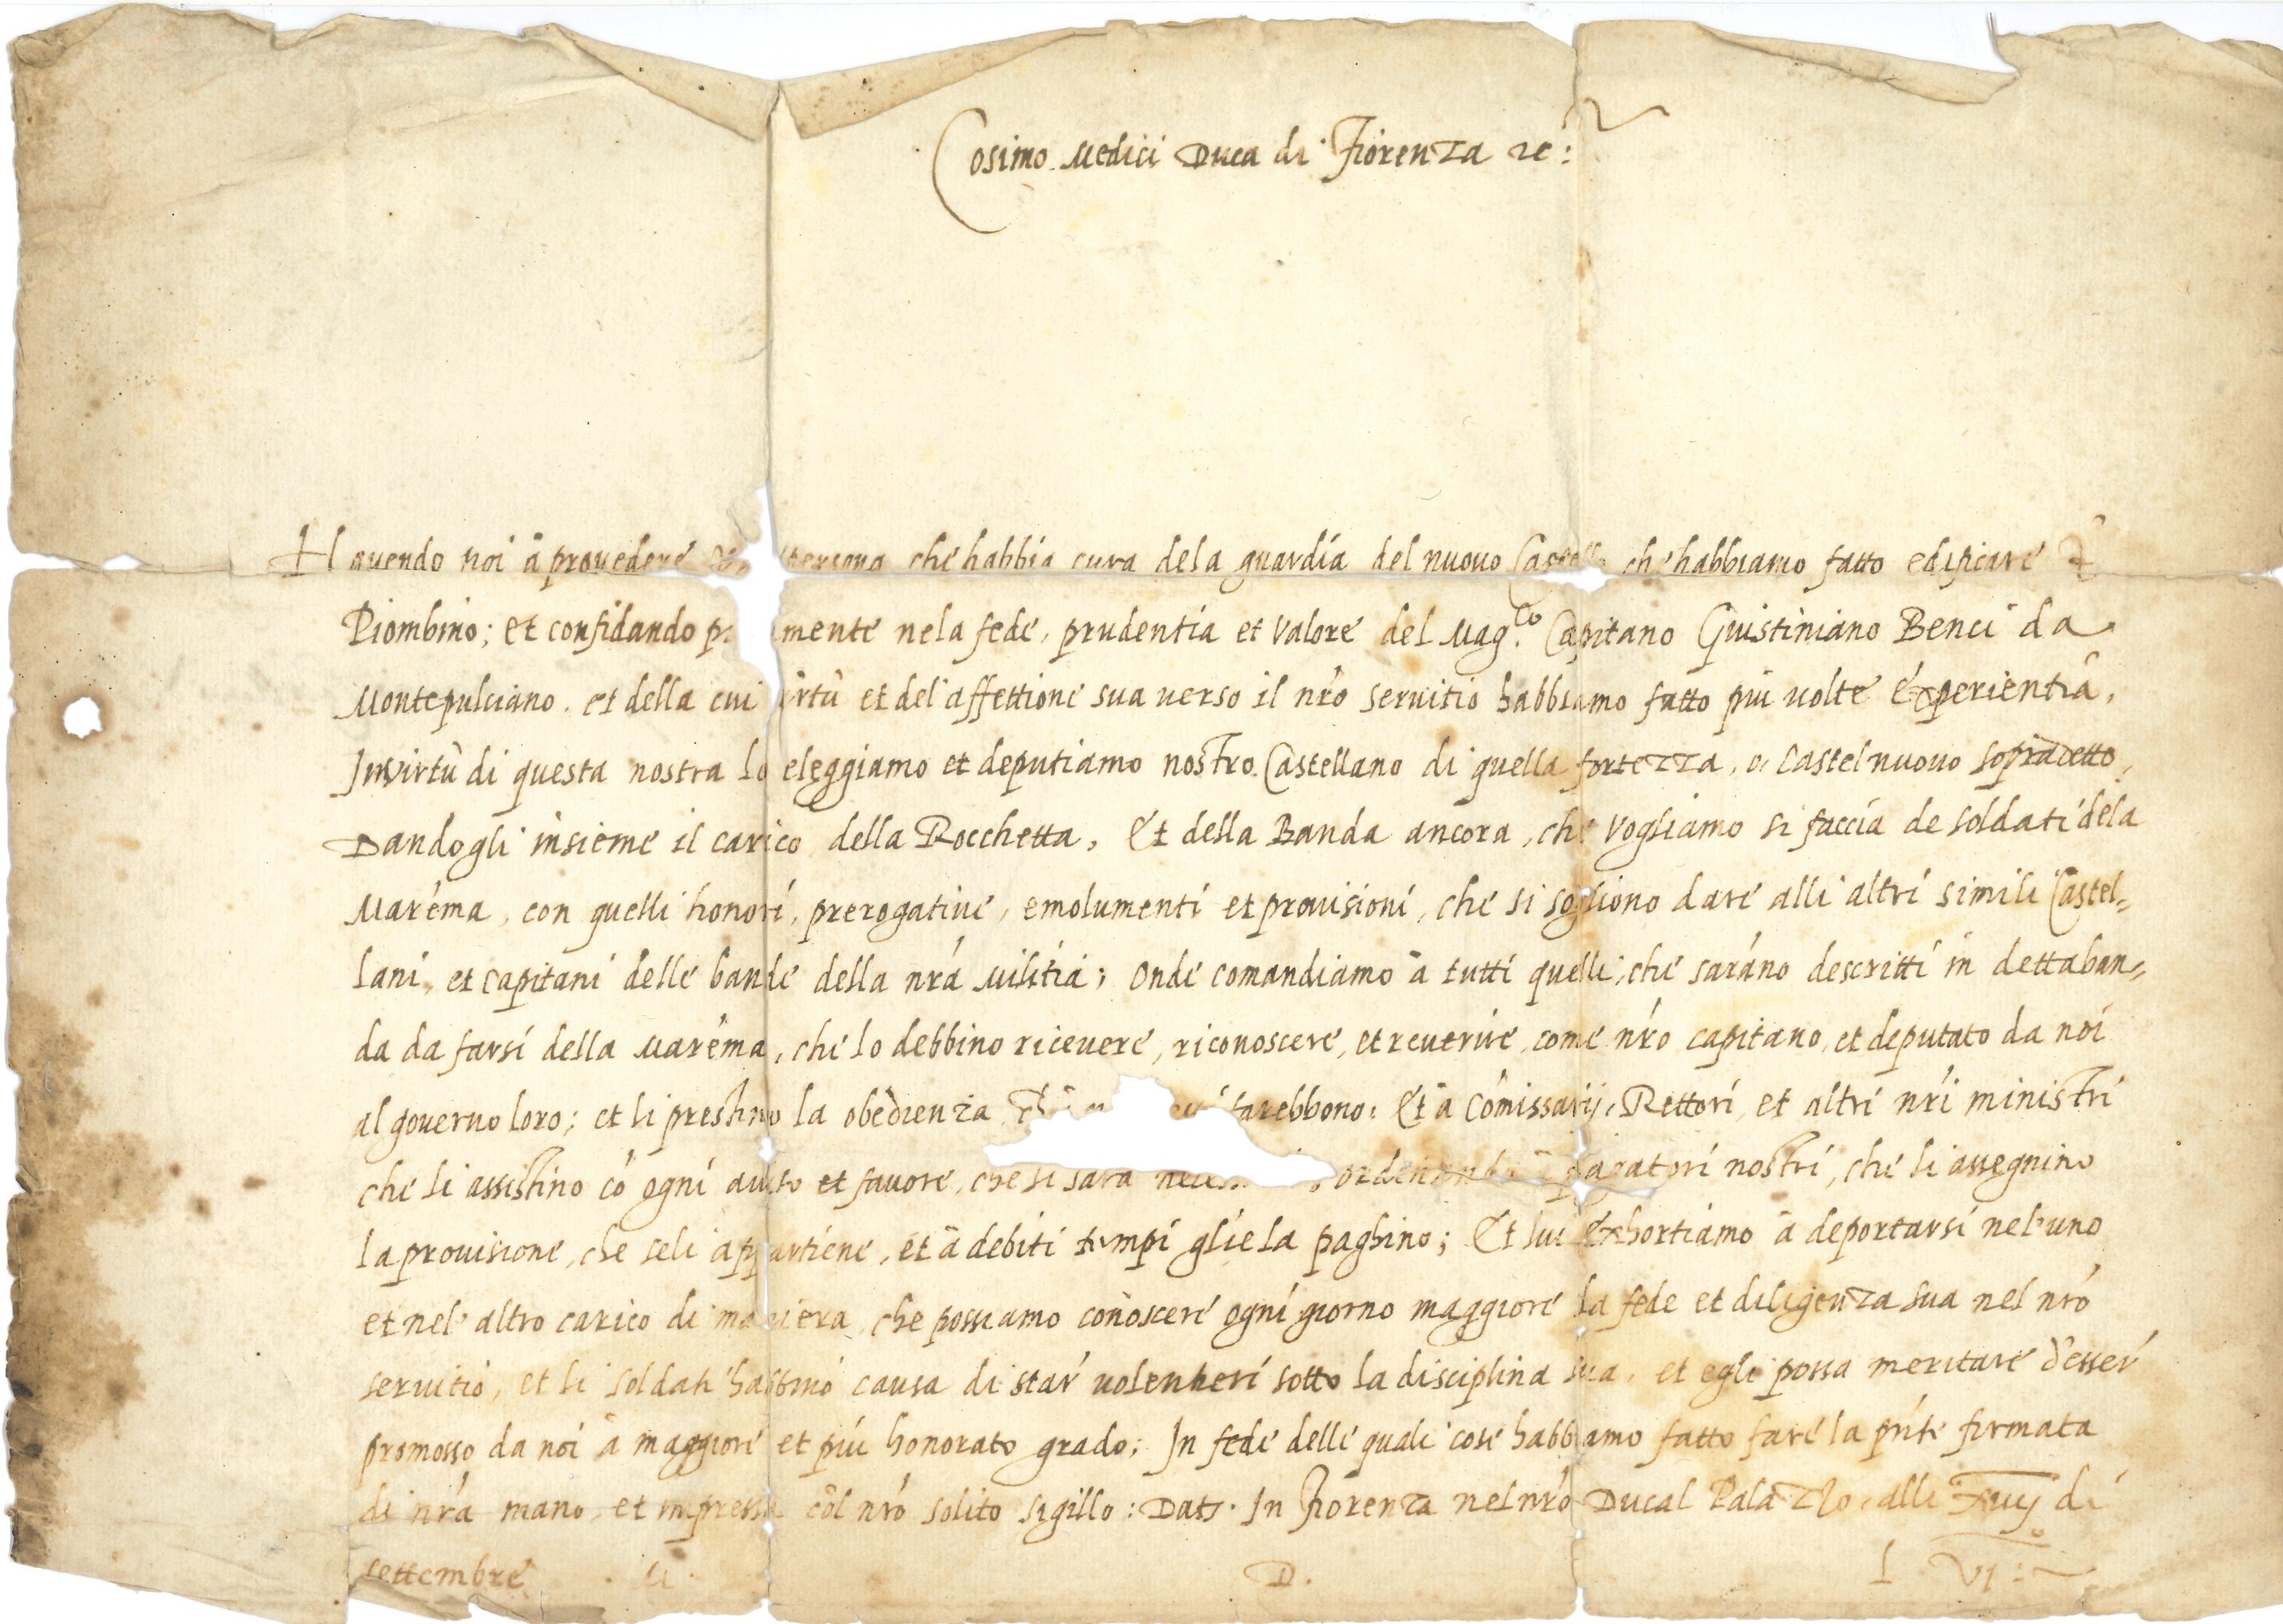 Cosimo Medici Duca di Fiorenza &c:
Havendo noi à provedere persona che habbia cura dela guardia del nuovo che habbiamo fatto edificare
Piombino; et confidando nela fede, prudentia et valore del Mag.co Capitano Giustiniano Benci da
Montepulciano. et della cui et del'affettione sua verso il nr̃o servitio habbiamo fatto più volte experientia,
In virtù di questa nostra lo eleggiamo et deputiamo nostro Castellano di quella fortezza, o, Castelnuovo sopradetto,
Dandogli insieme il carico della Rocchetta, et della Banda ancora, che vogliamo si faccia de soldati dela
Marẽma, con quelli honori, prerogative, emolumenti et provisioni, che si sogliono dare alli altri simili Castel=
lani, et capitani delle bande della nr̃a militia; onde comandiamo à tutti quelli, che sarãno descritti in detta ban=
da da farsi della Marẽma, che lo debbino ricevere, riconoscere, et reverire, come nr̃o capitano, et deputato da noi
al governo loro; et li prestino la obedienza farebbono. Et à Cõmissarij, Rettori, et altri nr̃i ministri
che li assistino cõ ogni aiuto et favore, che li sarà pagatori nostri, che li assegnino
la provisione, che seli appartiene, et à debiti tempi gliela paghino; Et lui exhortiamo à deportarsi nel'uno
et nel'altro carico di maniera, che possiamo conoscere ogni giorno maggiore la fede et diligenza sua nel nr̃o
servitio, et li soldati habbino causa di star volentieri sotto la disciplina sua, et egli possa meritare d'esser
promosso da noi à maggiore et più honorato grado; In fede delle quali cose habbiamo fatto fare la pñte firmata
di nr̃a mano, et impressa col nr̃o solito sigillo: Dat. In Fiorenza nel nr̃o Ducal Palazzo, alli xvij di
settembre M. D. L VI: